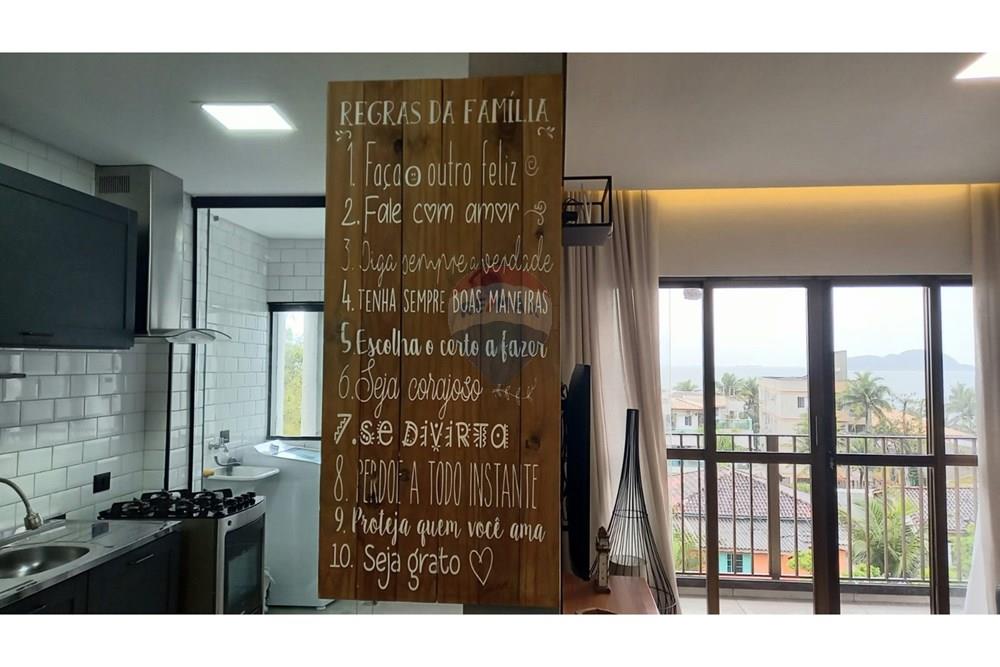 REGRAS DA FAMÍLIA
1. Faça o outro feliz
2. Fale com amor
3. Diga sempre a verdade
4. TENHA SEMPRE BOAS MANEIRAS
5. Escolha o certo a fazer
6. Seja corajoso
7. SE DIVIRTA
8. PERDOE A TODO INSTANTE
9. Proteja quem você ama
10. Seja grato